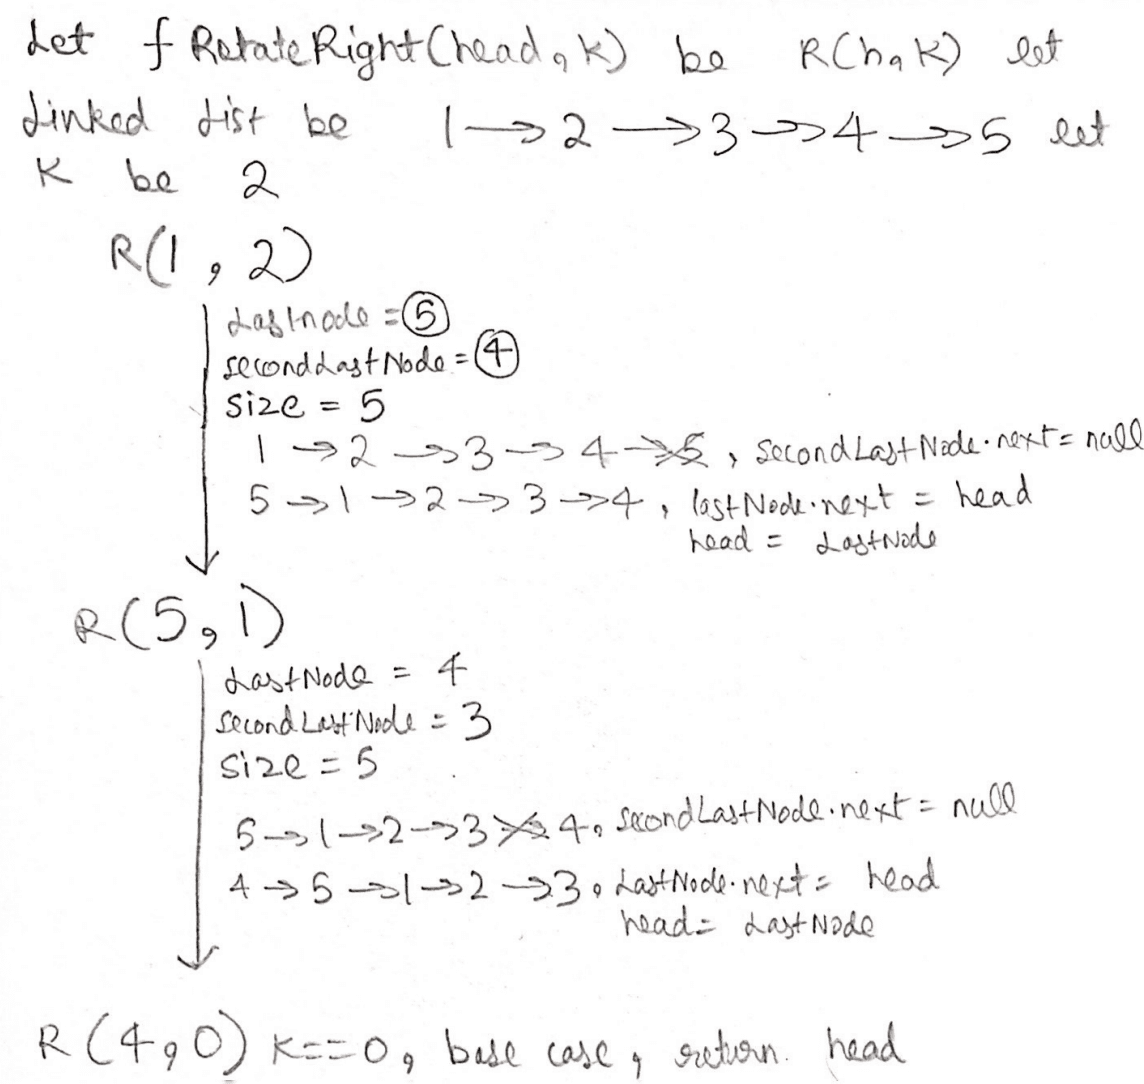 Let f RotateRight(head, k) be R(h, k) let
Linked List be 1 → 2 → 3 → 4 → 5 let
K be 2
R(1, 2)
Lastnode = 5
secondLastNode = 4
size = 5
1 → 2 → 3 → 4 → 5, secondLastNode.next = null
5 → 1 → 2 → 3 → 4, lastNode.next = head
head = LastNode
R(5, 1)
LastNode = 4
secondLastNode = 3
size = 5
5 → 1 → 2 → 3 → 4, secondLastNode.next = null
4 → 5 → 1 → 2 → 3, LastNode.next = head
head = LastNode
R(4, 0) K==0, base case, return head